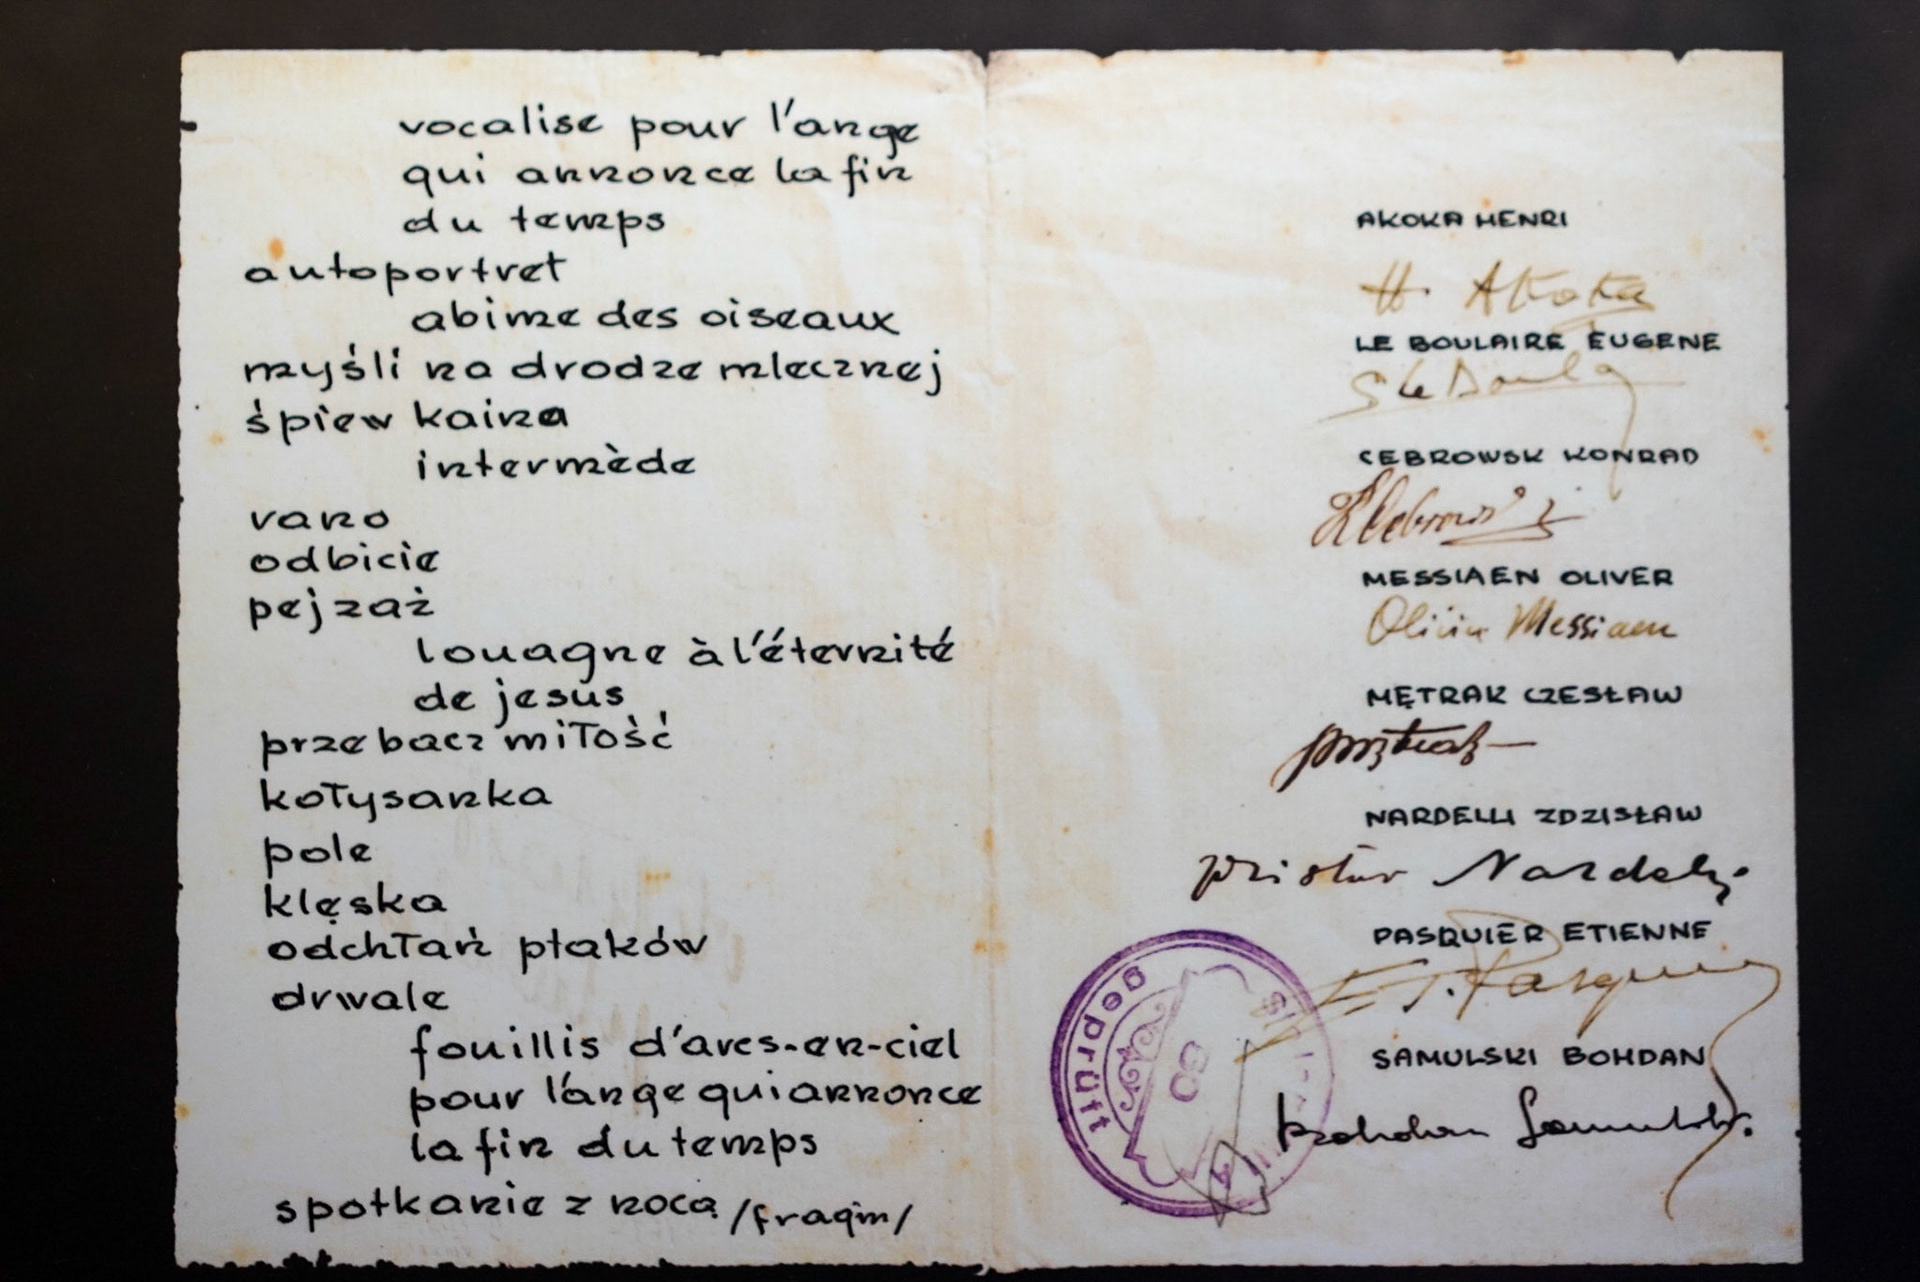 vocalise pour l'ange
qui annonce la fin
du temps
autoportret
abime des oiseaux
myśli na drodze mlecznej
śpiew kaina
intermède
rano
odbicie
pejzaż
louagne à l'éternité
de jesus
przebacz miłość
kołysanka
pole
klęska
odchłań ptaków
drwale
fouillis d'arcs-en-ciel
pour l'ange qui annonce
la fin du temps
spotkanie z nocą /fragm/
AKOKA HENRI
H. Akoka
LE BOULAIRE EUGENE
CEBROWSK KONRAD
MESSIAEN OLIVER
Olivier Messiaen
MĘTRAK CZESŁAW
NARDELLI ZDZISŁAW
Nardelli
PASQUIER ETIENNE
E. T. Pasquier
SAMULSKI BOHDAN
Bohdan Samulski
geprüft
80